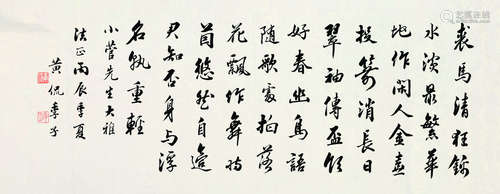 裘馬清狂錦
水濱最繁華
地作閑人金壺
投箭消長日
翠袖傳盃領
好春幽鳥語
隨歌處拍落
花飄作舞時
茵悠然自適
君知否身與浮
名孰重輕
小菅先生大雅
法正丙辰季夏
黄侃季子